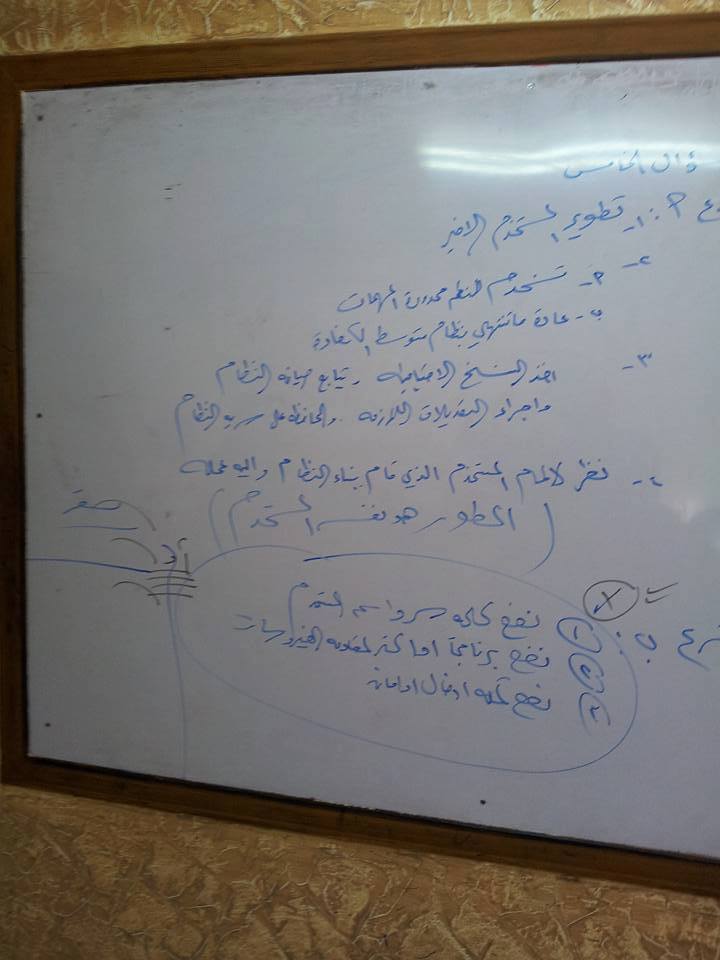 ؤال الخامس
رع أ: ١- تطوير المستخدم الاخير
٢- أ- تستخدم النظم محدودة المهمات
ب- عادة ما تنتهي بنظام متوسط الكفاءة
٣- اخذ النسخ الاحتياطيه وتتابع صيانه النظام
واجراء التعديلات اللازمه والمحافظه على سريه النظام
٤- نظرا لالمام المستخدم الذي قام ببناء النظام واليه عمله
(المطور هو نفسه المستخدم)
صفر
أو
X
فرع ب: ١ نضع كلمه سر واسم المستخدم
٢ نضع برنامجا او اكثر لمقاومه الفيروسات
٣ نضع